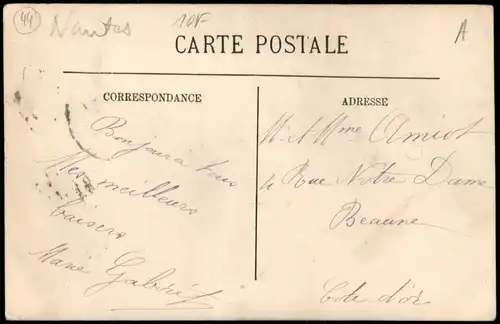 44
Nantes
10F
A
CARTE POSTALE
CORRESPONDANCE
ADRESSE
Bonjour à tous
Mes meilleurs
baisers
Marie
Mr et Mme Amiot
4 Rue Notre Dame
Beaune
Cote d'or